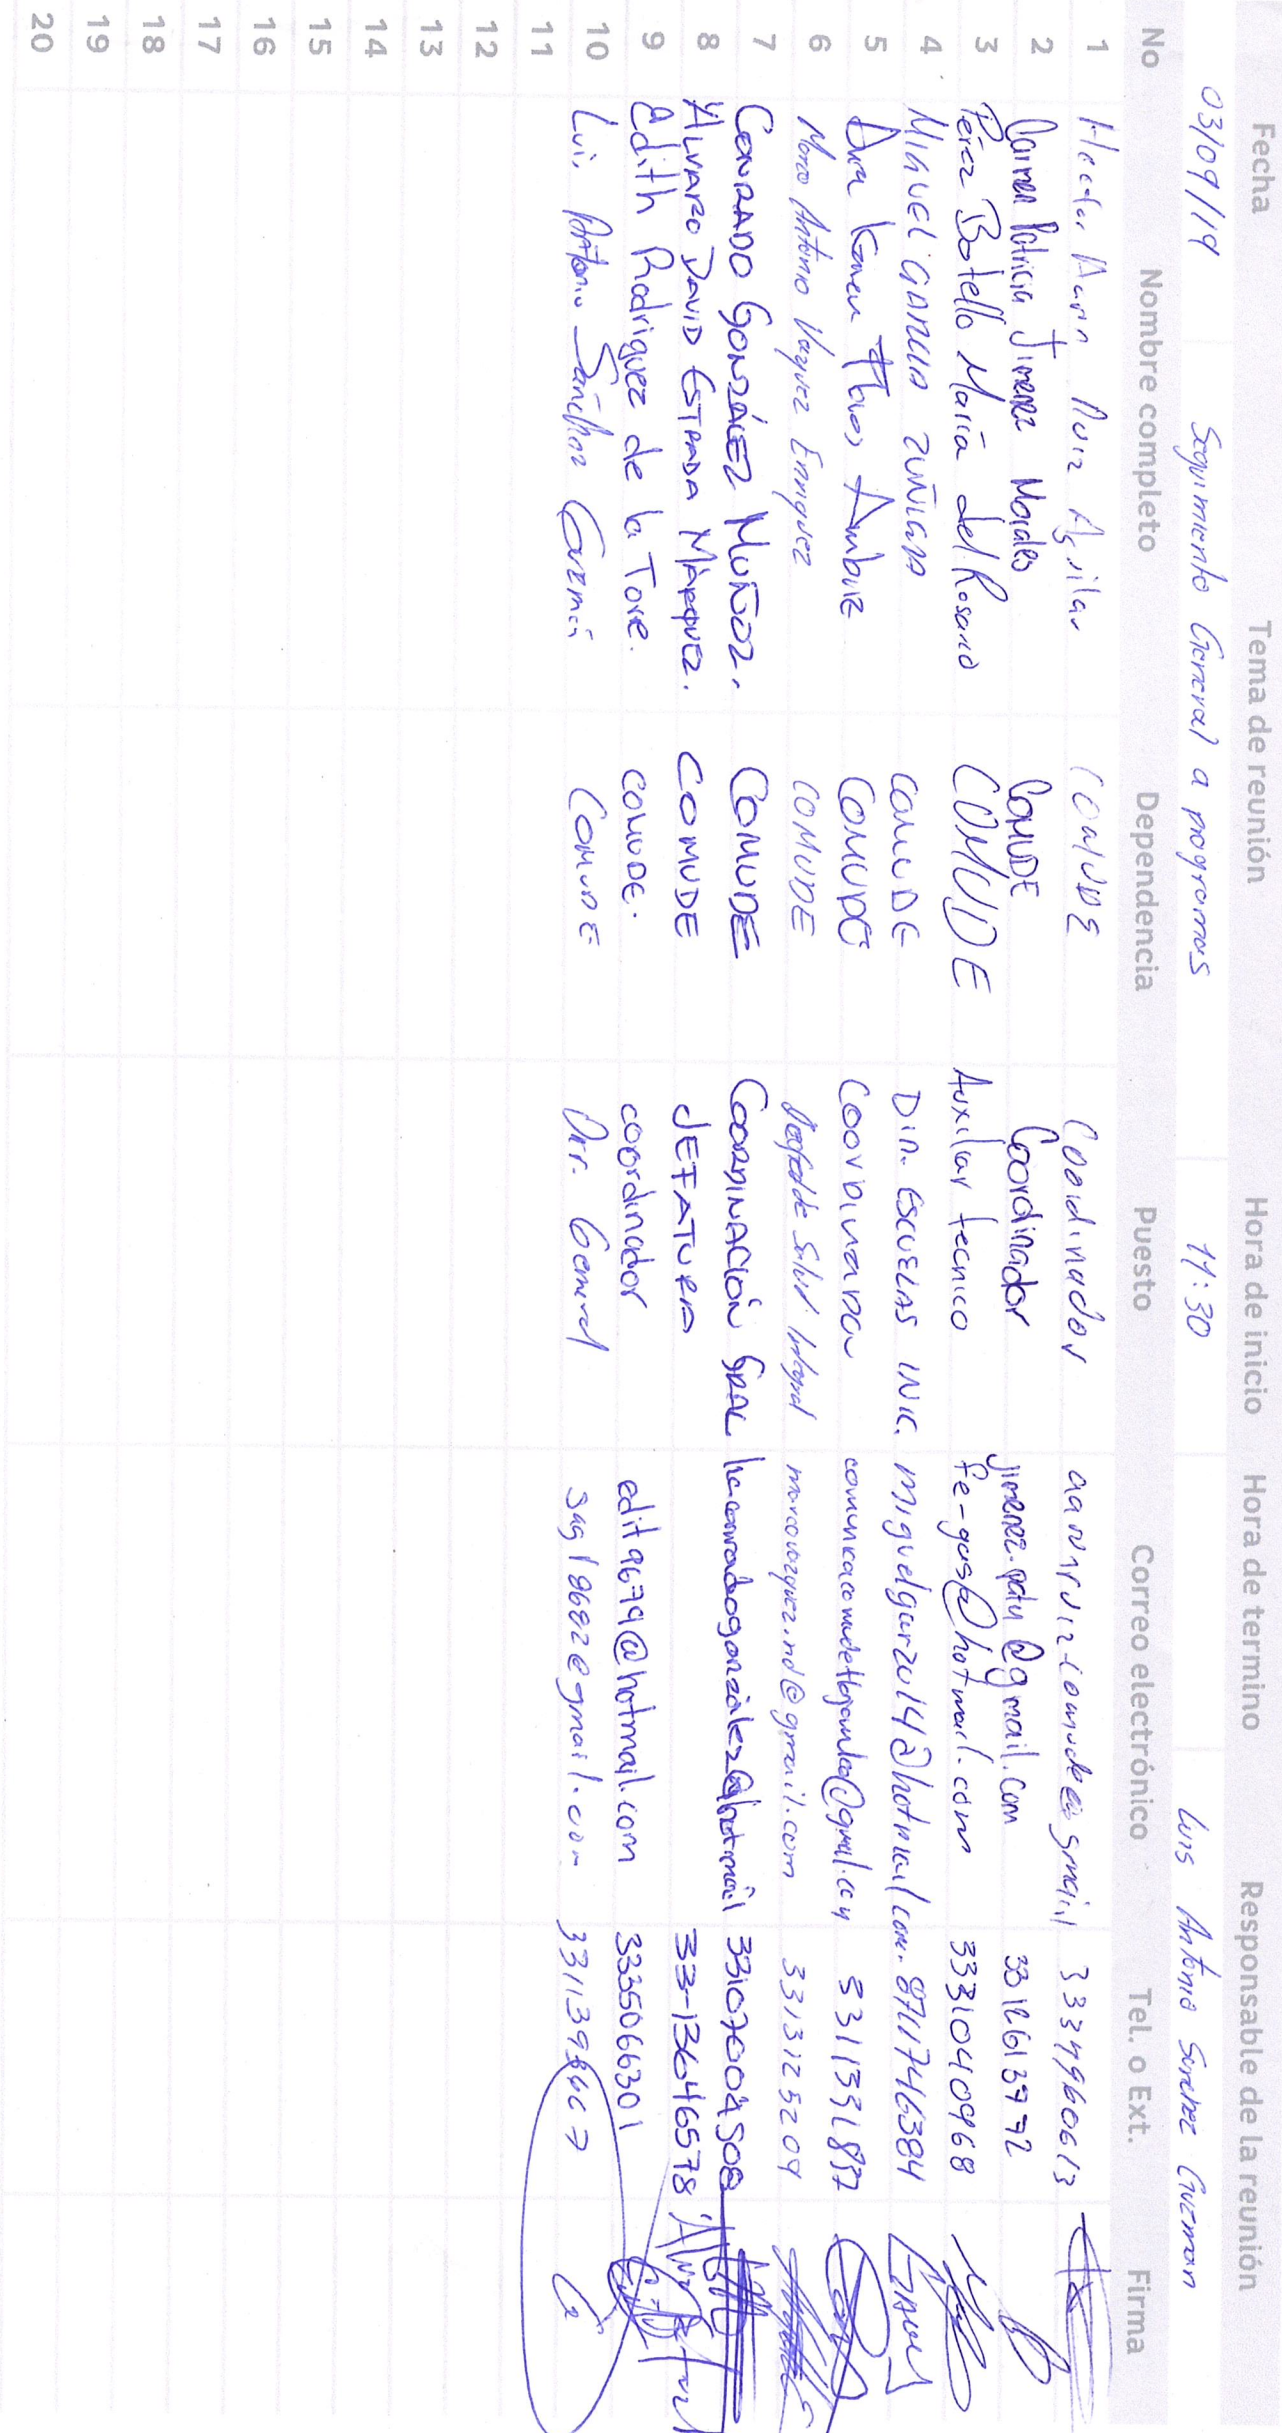 Fecha Tema de reunión Hora de inicio Hora de termino Responsable de la reunión
03/09/19 Seguimiento General a programas 11:30 Luis Antonio Sanchez Guzman
No Nombre completo Dependencia Puesto Correo electrónico Tel. o Ext. Firma
1 Hector Aaron Ruiz Aguilar COMUDE Coordinador 3334960613
2 Carmen Patricia Jimenez Morales COMUDE Coordinador jimenez.paty@gmail.com 3312613772
3 Pérez Botello María del Rosario COMUDE Auxiliar tecnico fe-gus@hotmail.com 3331040968
4 MIGUEL GARCIA ZUÑIGA COMUDE DIR. ESCUELAS INIC. miguelgarzu14@hotmail.com. 8711746384
5 Ana Karen Flores Ambriz COMUDE Coordinadora 3311331837
6 Marco Antonio Vazquez Enriquez COMUDE Jefe de Salud Integral marcovazquez.nd@gmail.com 3313125209
7 CONRADO GONZÁLEZ MUÑOZ. COMUDE COORDINACIÓN GRAL 33107004508
8 ALVARO DAVID ESTRADA MÁRQUEZ. COMUDE JEFATURA 33-13646578
9 Edith Rodriguez de la Torre. COMUDE. coordinador edit9679@hotmail.com 3335066301
10 Luis Antonio Sánchez Guzmán COMUDE Dir. General sag18682@gmail.com
11
12
13
14
15
16
17
18
19
20